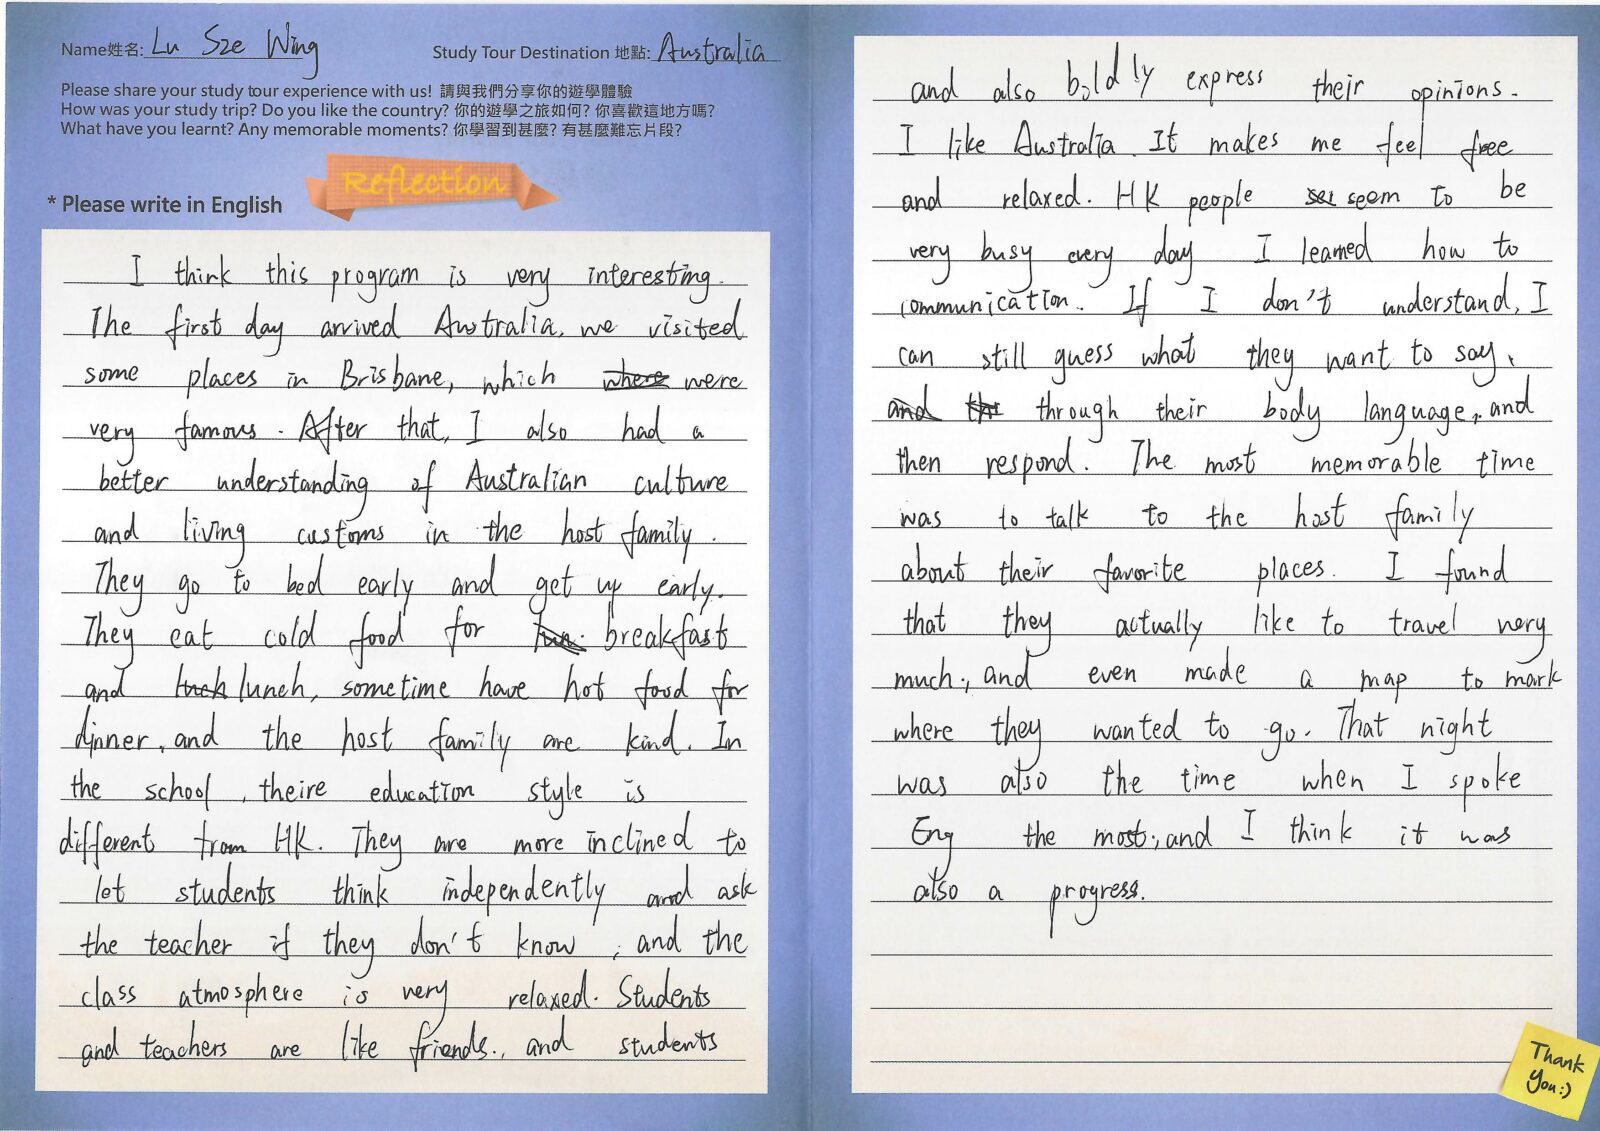 Name姓名: Lu Sze Wing
Study Tour Destination 地點: Australia
Please share your study tour experience with us! 請與我們分享你的遊學體驗
How was your study trip? Do you like the country? 你的遊學之旅如何? 你喜歡這地方嗎?
What have you learnt? Any memorable moments? 你學習到甚麼? 有甚麼難忘片段?
Reflection
* Please write in English
I think this program is very interesting.
The first day arrived Australia, we visited
some places in Brisbane, which where were
very famous. After that, I also had a
better understanding of Australian culture
and living customs in the host family.
They go to bed early and get up early.
They eat cold food for lun. breakfast
and luch lunch, sometime have hot food for
dinner, and the host family are kind. In
the school, theire education style is
different from HK. They are more inclined to
let students think independently and ask
the teacher if they don't know, and the
class atmosphere is very relaxed. Students
and teachers are like friends., and students
and also boldly express their opinions.
I like Australia. It makes me feel free
and relaxed. HK people seem to be
very busy every day I learned how to
communication. If I don't understand, I
can still guess what they want to say,
and th through their body language, and
then respond. The most memorable time
was to talk to the host family
about their favorite places. I found
that they actually like to travel very
much, and even made a map to mark
where they wanted to go. That night
was also the time when I spoke
Eng the most, and I think it was
also a progress.
Thank
You :)